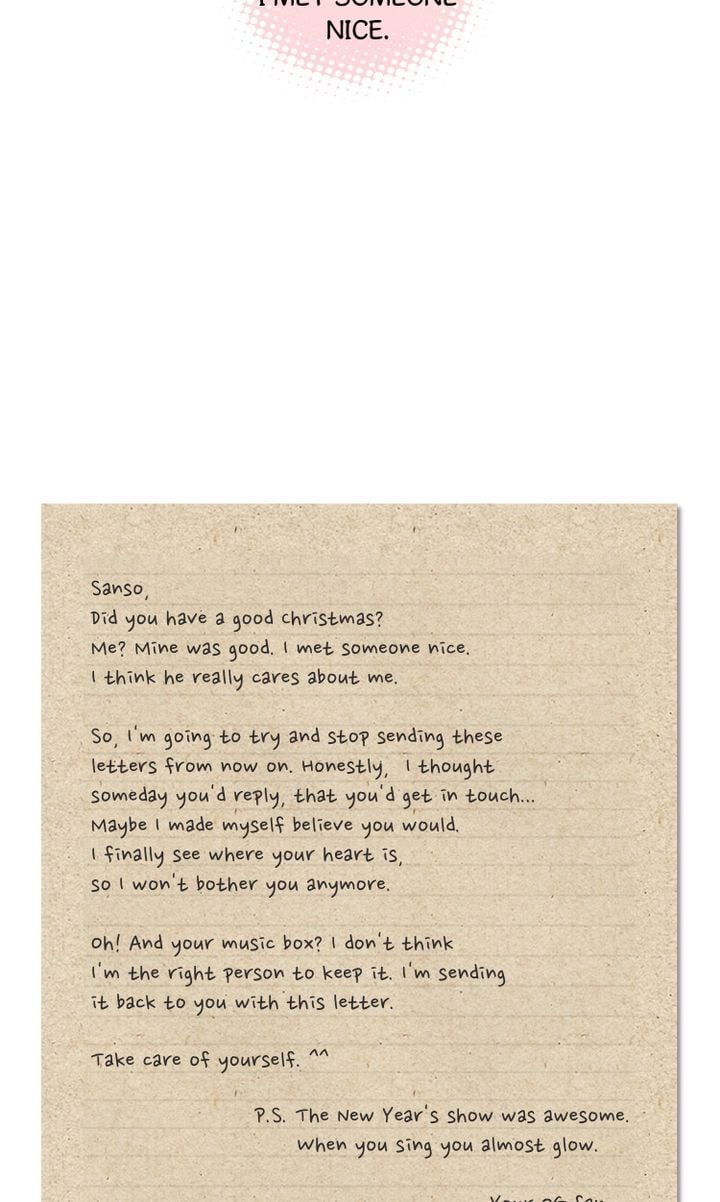 I MET SOMEONE
NICE.
Sanso,
Did you have a good christmas?
Me? Mine was good. I met someone nice.
I think he really cares about me.
So, I'm going to try and stop sending these
letters from now on. Honestly, I thought
someday you'd reply, that you'd get in touch...
Maybe I made myself believe you would.
I finally see where your heart is,
so I won't bother you anymore.
Oh! And your music box? I don't think
I'm the right person to keep it. I'm sending
it back to you with this letter.
Take care of yourself. ^^
P.S. The New Year's show was awesome.
When you sing you almost glow.
Your OG fan